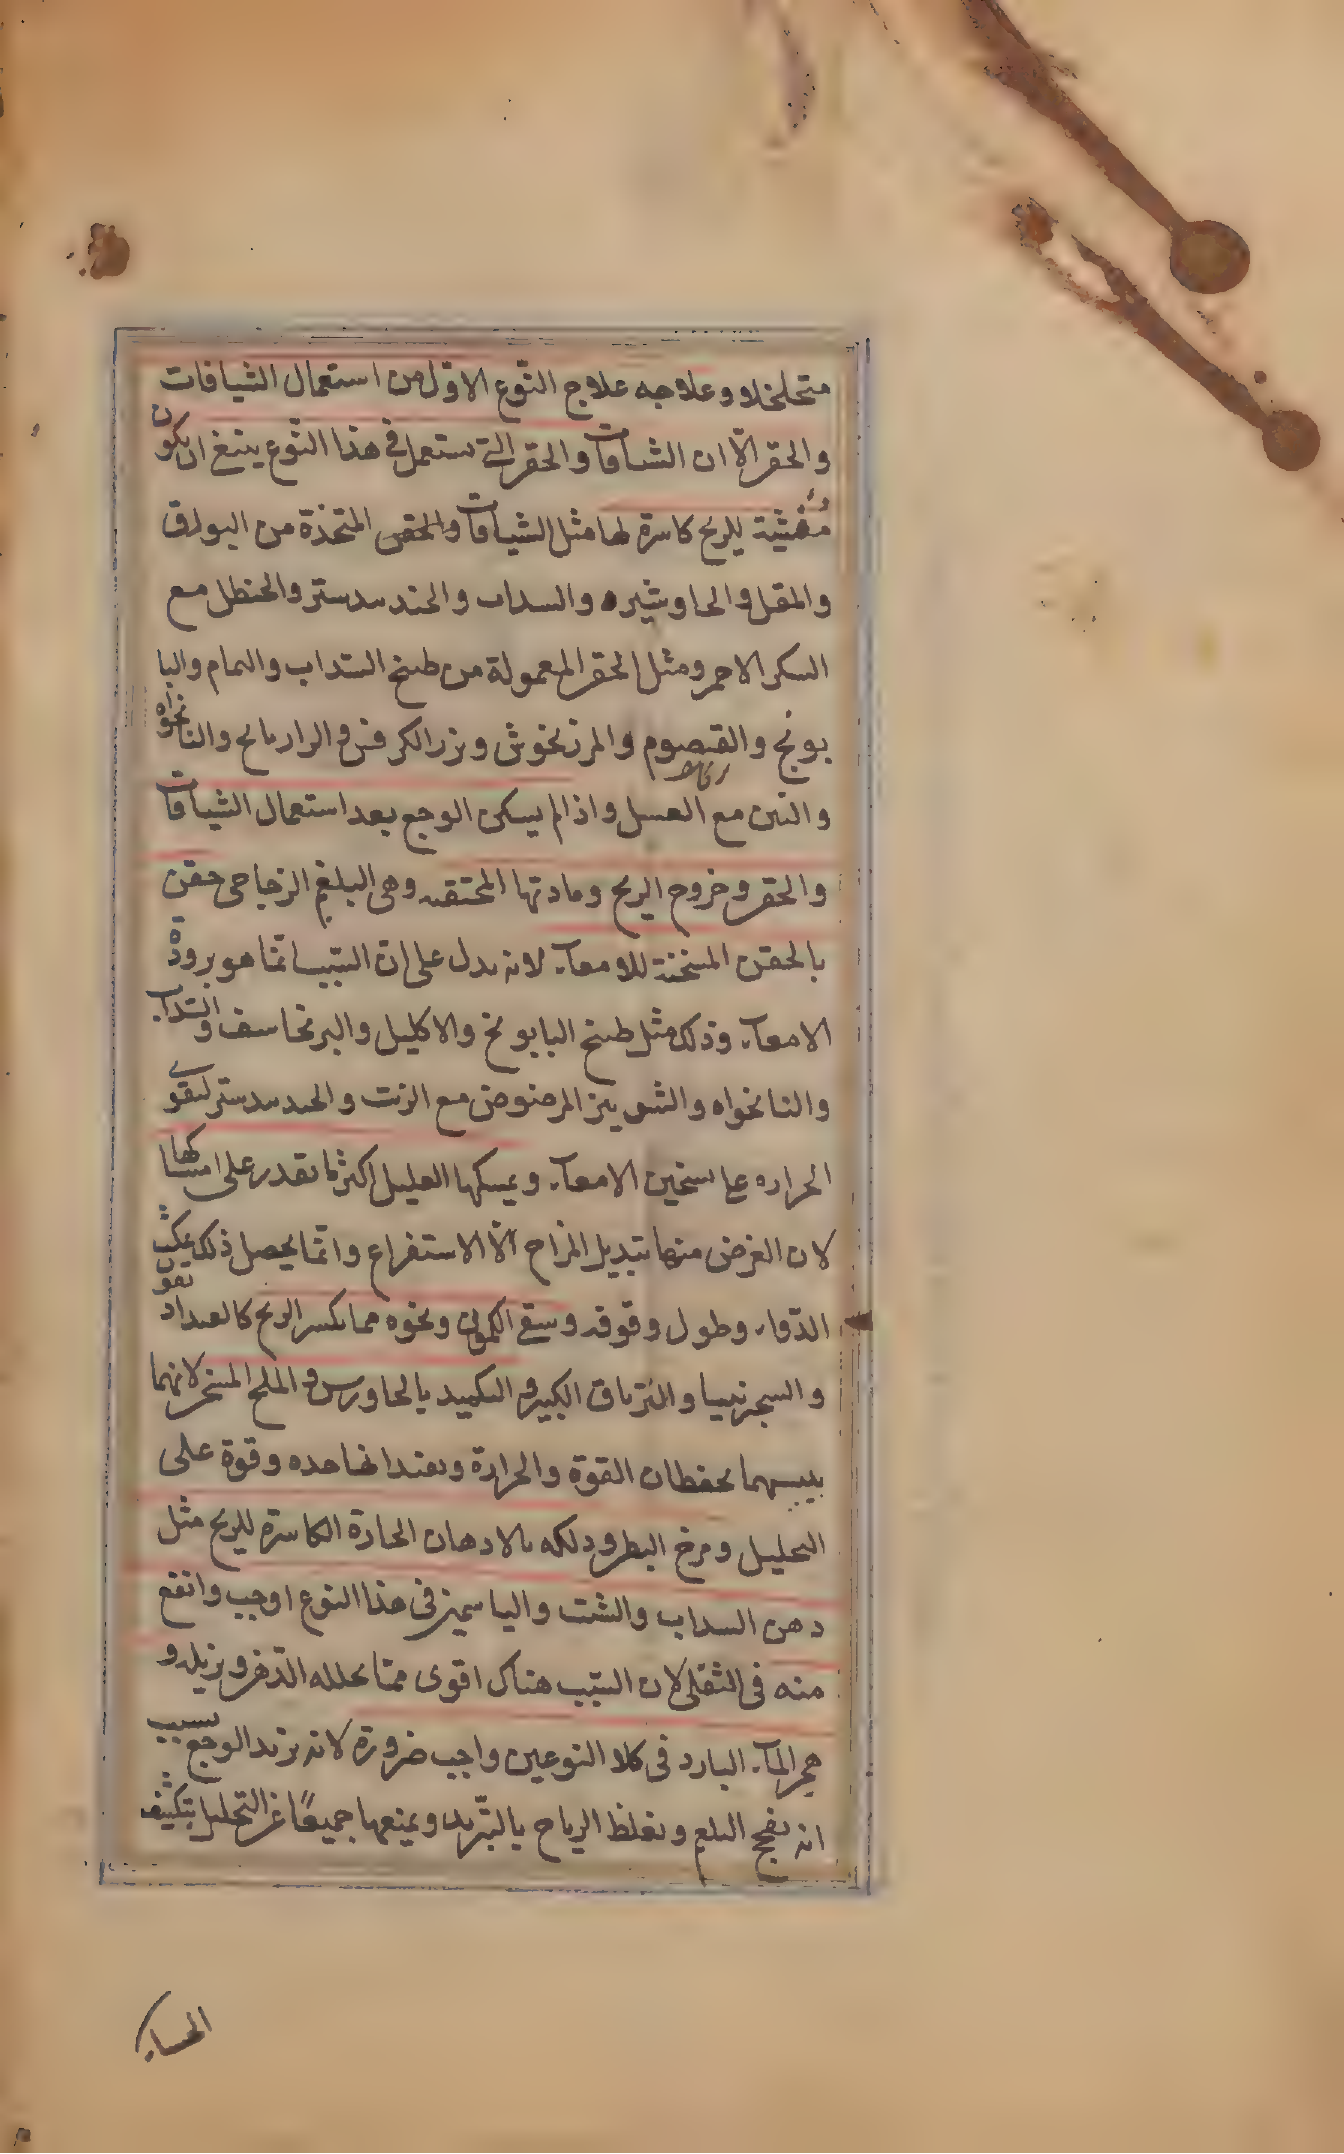 متخلخلا وعلاجه علاج النّوع الاوّل من استعمال الشيافات
والحقن الّا ان الشيافات والحقن الّتى تستعمل فى هذا النّوع ينبغى ان يكون
مُفشّية للريح كاسرة لها مثل الشيافات والحقن المتخذة من البورق
والمقل والجاوشير والسداب والجندبيدستر والحنظل مع
السكر الاحمر ومثل الحقن المعمولة من طبيخ السّداب والنمام والبا
بونج والقيصوم والمرزنخوش وبزر الكرفس والرازيانج والنانخواه
والتين مع العسل واذا لم يسكن الوجع بعد استعمال الشيافات
والحقن وخروج الريح ومادتها المحتقنه وهى البلغم الزجاجى حقن
بالحقن المسخنة للامعآء لانه يدل على انّ السّبب انّما هو برودة
الامعآء وذلك مثل طبيخ البابونج والاكليل والبرنجاسف والسّداب
والنانخواه والشونيز المرضوض مع الزيت والجندبيدستر ليقوى
الحراره على تسخين الامعآء ويمسكها العليل اكثر ما يقدر على امساكها
لان الغرض منها تبديل المزاج لا الاستفراغ وانّما يحصل ذلك بمكث
الدّوآء وطول وقوفه وسقى الكمونى ونحوه مما يكسر الريح كالفنداديقون
والسجزنيا والترياق الكبير والتكميد بالجاورس والملح المسخن لانهما
بيبسهما يحفظان القوة والحرارة ويفيدانها حده وقوة على
التحليل ومرخ البطن ودلكه بالادهان الحارة الكاسرة للريح مثل
دهن السداب والشبت والياسمين فى هذا النوع اوجب وانفع
منه فى الثفلى لان السّبب هناك اقوى ممّا يحلله الدّهن ويزيله و
هجر المآء البارد فى كلا النوعين واجب ضرورة لانه يزيد الوجع بسبب
انه يفجج البلغم ويغلظ الرياح بالتّبريد ويمنعها جميعًا عن التحليل بتكثيف